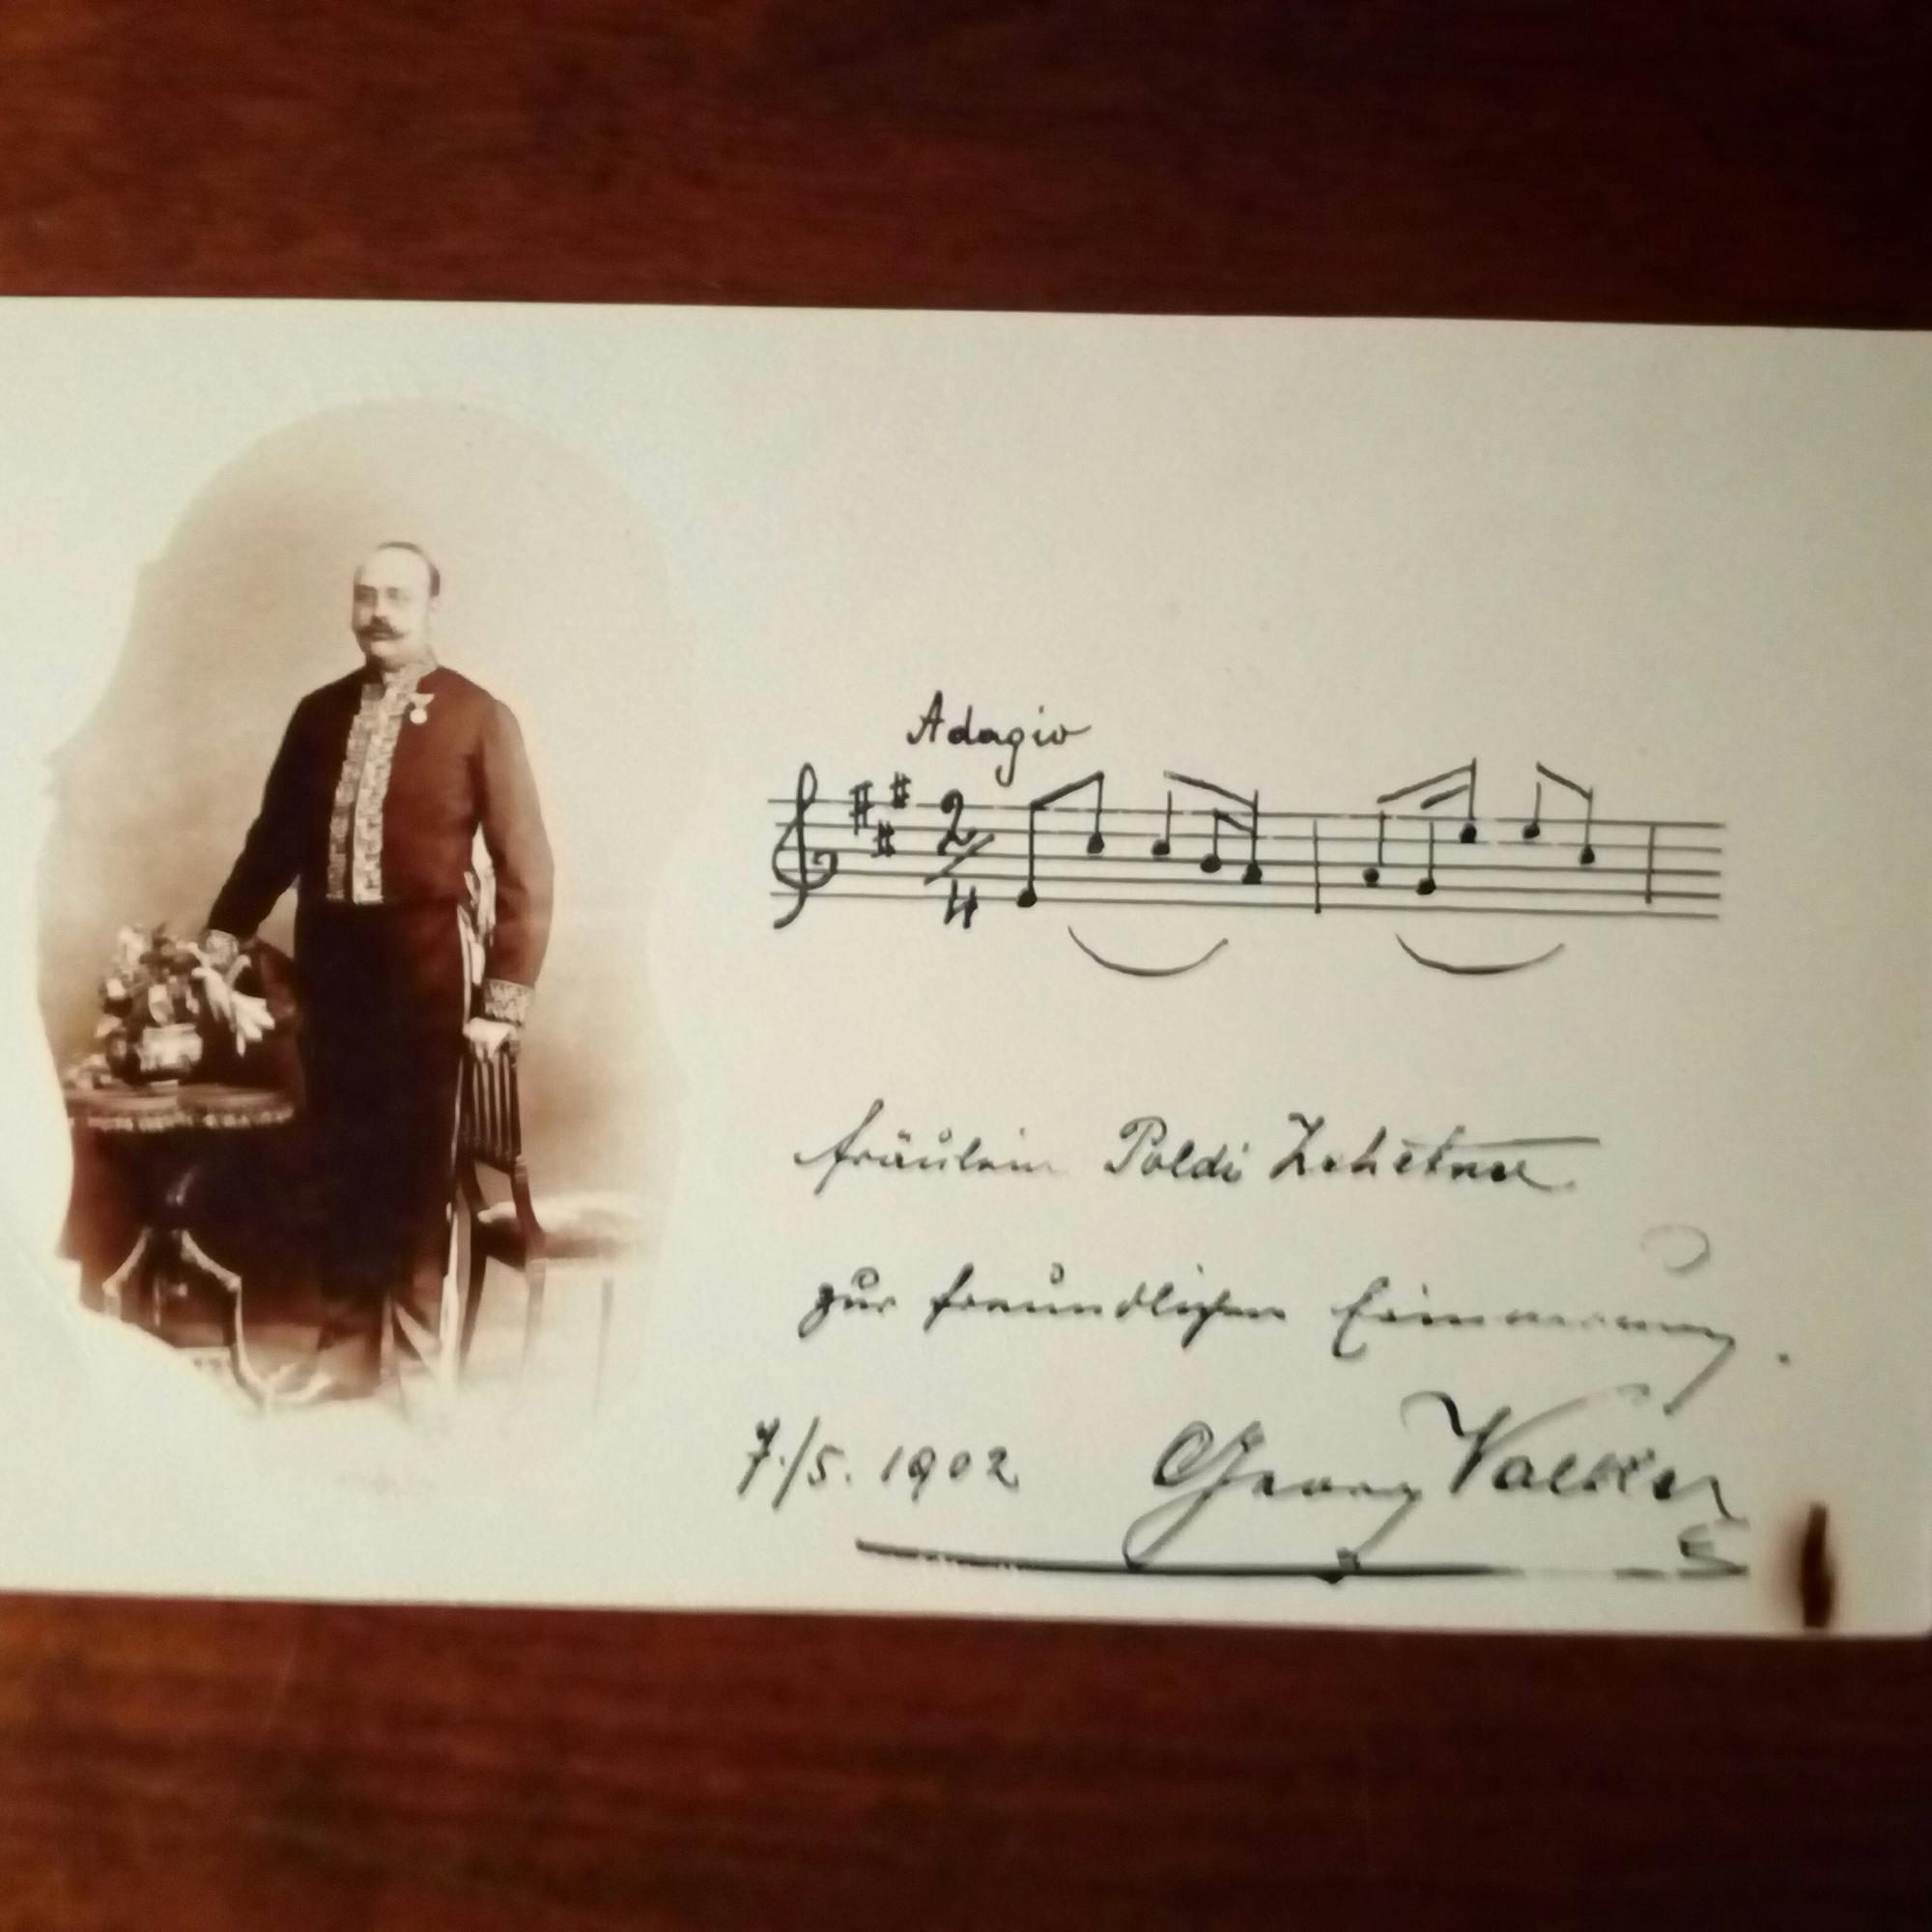 Adagio
2/4
Fräulein Poldi Zehetner
zur freundlichen Erinnerung.
7./5. 1902 Georg Valker